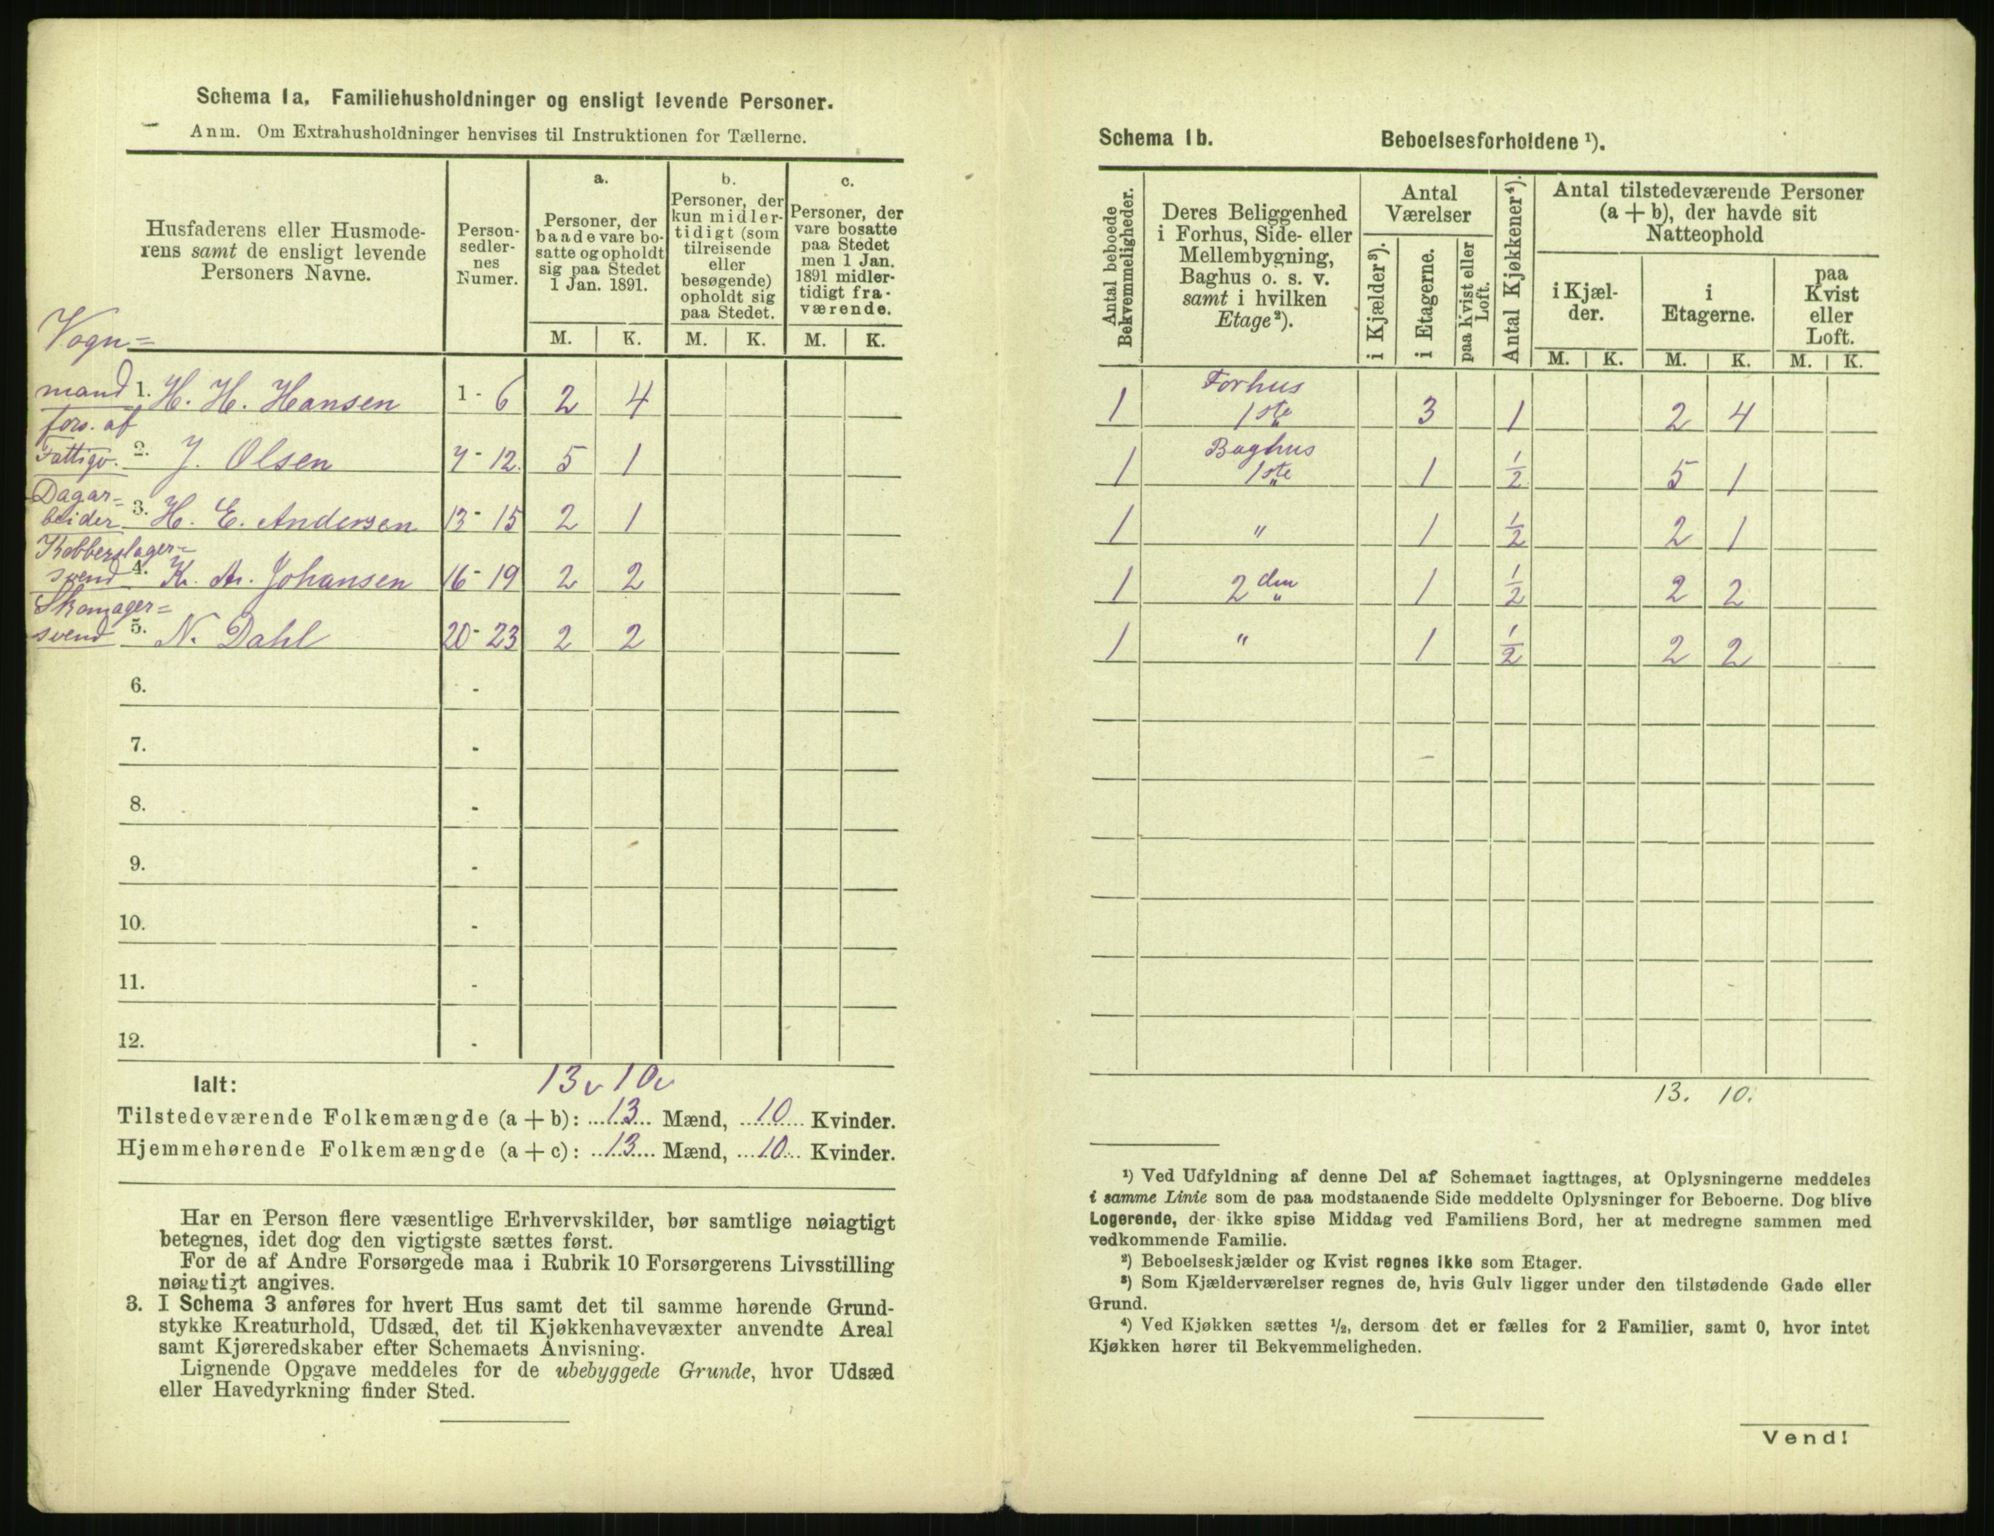 Schema 1a. Familiehusholdninger og ensligt levende Personer.
Anm. Om Extrahusholdninger henvises til Instruktionen for Tællerne.
Husfaderens eller Husmode-
rens samt de ensligt levende
Personers Navne.
Person-
sedler-
nes
Numer.
a.
Personer, der
baade vare bo-
satte og opholdt
sig paa Stedet
1 Jan. 1891.
b.
Personer, der
kun midler-
tidigt (som
tilreisende
eller
besøgende)
opholdt sig
paa Stedet.
c.
Personer, der
vare bosatte
paa Stedet
men 1 Jan.
1891 midler-
tidigt fra-
værende.
M. K. M. K. M. K.
Vogn=
mand 1. H. H. Hansen 1 - 6 2 4
fors. af
Fattigv. 2. J. Olsen 7 - 12. 5 1
Dagar=
beider 3. H. E. Andersen 13 - 15 2 1
Kobberslager=
svend 4. K. A. Johansen 16 - 19 2 2
Skomager=
svend 5. N. Dahl 20 - 23 2 2
6. -
7. -
8. -
9. -
10. -
11. -
12. -
Ialt: 13 10
Tilstedeværende Folkemængde (a + b): 13 Mænd, 10 Kvinder.
Hjemmehørende Folkemængde (a + c): 13 Mænd, 10 Kvinder.
Har en Person flere væsentlige Erhvervskilder, bør samtlige nøiagtigt
betegnes, idet dog den vigtigste sættes først.
For de af Andre Forsørgede maa i Rubrik 10 Forsørgerens Livsstilling
nøiagtigt angives.
3. I Schema 3 anføres for hvert Hus samt det til samme hørende Grund-
stykke Kreaturhold, Udsæd, det til Kjøkkenhavevæxter anvendte Areal
samt Kjøreredskaber efter Schemaets Anvisning.
Lignende Opgave meddeles for de ubebyggede Grunde, hvor Udsæd
eller Havedyrkning finder Sted.
Schema 1b. Beboelsesforholdene ¹).
Antal beboede
Bekvemmeligheder.
Deres Beliggenhed
i Forhus, Side- eller
Mellembygning,
Baghus o. s. v.
samt i hvilken
Etage²).
Antal
Værelser
i Kjælder³).
i Etagerne.
paa Kvist eller
Loft.
Antal Kjøkkener⁴).
Antal tilstedeværende Personer
(a + b), der havde sit
Natteophold
i Kjæl-
der.
i
Etagerne.
paa
Kvist
eller
Loft.
M. K. M. K. M. K.
Forhus
1 1ste 3 1 2 4
Baghus
1 1ste 1 ½ 5 1
1 " 1 ½ 2 1
1 2den 1 ½ 2 2
1 " 1 ½ 2 2
13. 10.
¹) Ved Udfyldning af denne Del af Schemaet iagttages, at Oplysningerne meddeles
i samme Linie som de paa modstaaende Side meddelte Oplysninger for Beboerne. Dog blive
Logerende, der ikke spise Middag ved Familiens Bord, her at medregne sammen med
vedkommende Familie.
²) Beboelseskjælder og Kvist regnes ikke som Etager.
³) Som Kjælderværelser regnes de, hvis Gulv ligger under den tilstødende Gade eller
Grund.
⁴) Ved Kjøkken sættes ½, dersom det er fælles for 2 Familier, samt 0, hvor intet
Kjøkken hører til Bekvemmeligheden.
Vend!